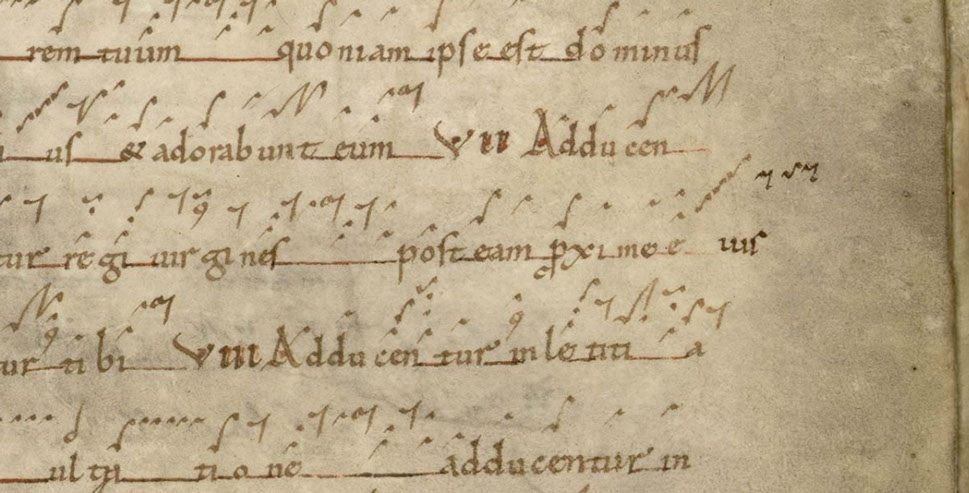 rem tuum quoniam ipse est dominus
us & adorabunt eum VII Adducen
tur regi uirgines post eam pximę eius
tur tibi VIII Adducentur in lętiti a
ultati one adducentur in